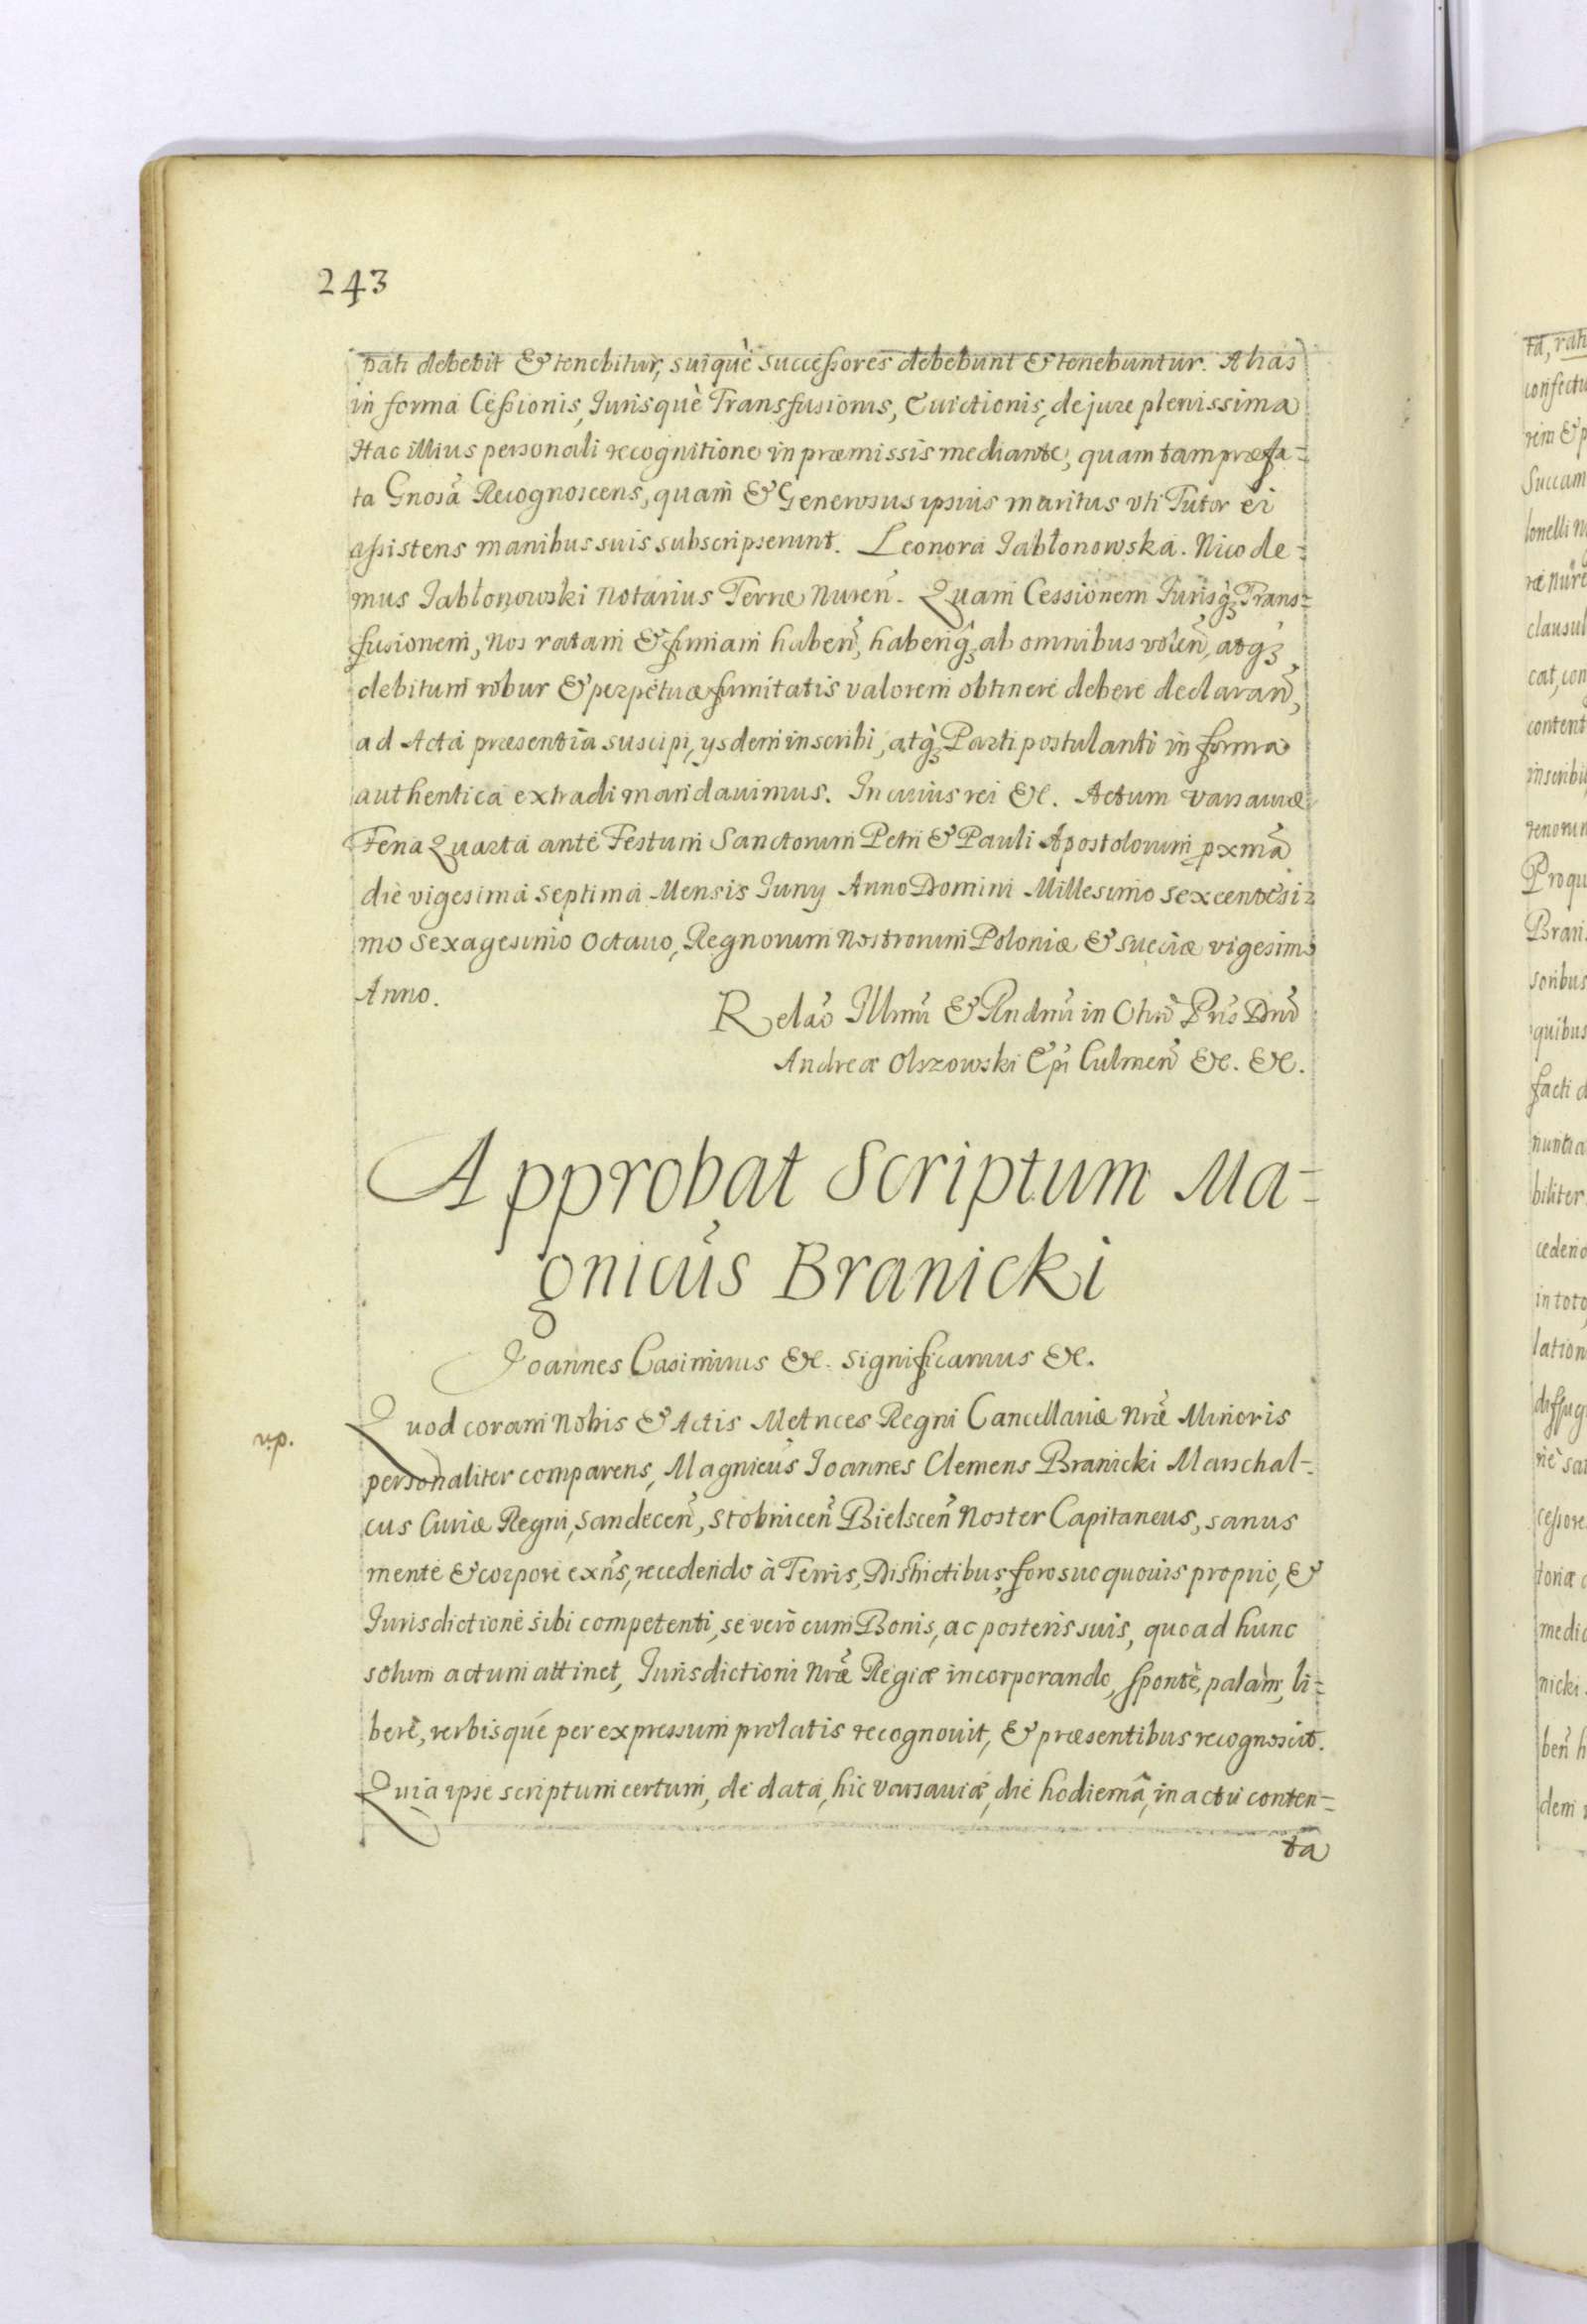 243
pati debebit & tenebitur, suiquè successores debebunt & tenebuntur. Alias
in forma Cessionis, Jurisquè Transfusionis, Euictionis, de jure plenissima
Hac illius personali recognitione in præmissis mediante, quam tam præfa=
ta Gnosa Recognoscens, quam & Generosus ipsius maritus vti Tutor ei
assistens manibus suis subscripserunt. Leonora Jabłonowska. Nicode=
mus Jabłonowski Notarius Terræ Nuren. Quam Cessionem Jurisq; Trans=
fusionem, Nos ratam & firmam haben, haberiq; ab omnibus volen, atq;
debitum robur & perpetuæ firmitatis valorem obtinere debere declaran,
ad Acta præsentia suscipi, ysdem inscribi, atq; Parti postulanti in forma
authentica extradi mandauimus. In cuius rei &c. Actum Varsauiæ
Feria Quarta ante Festum Sanctorum Petri & Pauli Apostolorum pxma
die vigesima septima Mensis Juny Anno Domini Millesimo sexcentesi=
mo sexagesimo octauo, Regnorum Nostrorum Poloniæ & Sueciæ vigesimo
Anno.
Relao Illmi & Rndmi in Chro Pris Dni
Andreæ Olszowski Epi Culmen &c. &c.
Approbat Scriptum Ma=
gnicus Branicki
Joannes Casimirus &c. Significamus &c.
v.p.
Quod coram Nobis & Actis Metrices Regni Cancellariæ Nræ Minoris
personaliter comparens, Magnicus Joannes Clemens Branicki Marschal=
cus Curiæ Regni, Sandecen, Stobnicen Bielscen Noster Capitaneus, sanus
mente & corpore exns, recedendo à Terris, Districtibus, foro suo quouis proprio, &
Jurisdictione sibi competenti, se verò cum Bonis, ac posteris suis, quoad hunc
solum actum attinet, Jurisdictioni Nræ Regiæ incorporando, spontè, palàm, li=
berè, verbisqué per expressum prolatis recognouit, & præsentibus recognoscit.
Quia ipse scriptum certum, de data, hic Varsauiæ, die hodierna, in actu conten=
ta